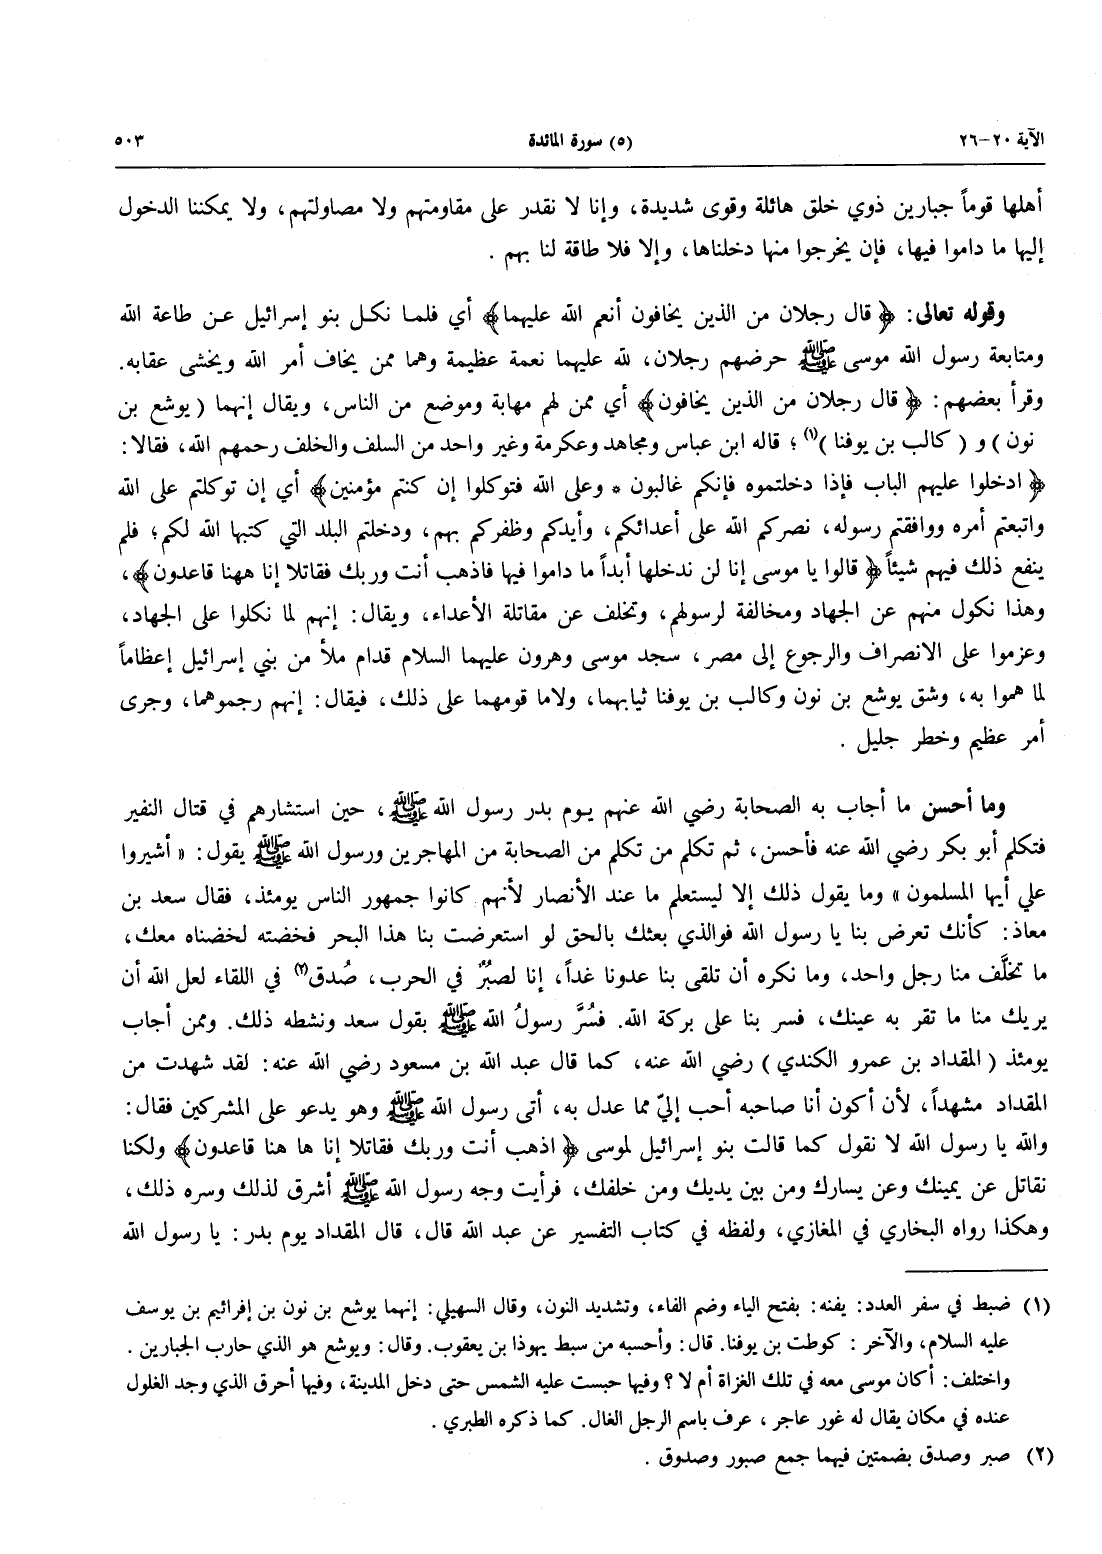 الآية ٢٠-٢٦ (٥) سورة المائدة ٥٠٣
أهلها قوماً جبارين ذوي خلق هائلة وقوى شديدة، وإنا لا نقدر على مقاومتهم ولا مصاولتهم، ولا يمكننا الدخول
إليها ما داموا فيها، فإن يخرجوا منها دخلناها، وإلا فلا طاقة لنا بهم .
وقوله تعالى: ﴿ قال رجلان من الذين يخافون أنعم الله عليهما﴾ أي فلمـا نكـل بنو إسرائيل عـن طاعة الله
ومتابعة رسول الله موسى ﷺ حرضهم رجلان، لله عليهما نعمة عظيمة وهما ممن يخاف أمر الله ويخشى عقابه.
وقرأ بعضهم: ﴿ قال رجلان من الذين يخافون﴾ أي ممن لهم مهابة وموضع من الناس، ويقال إنهما ( يوشع بن
نون ) و ( كالب بن يوفنا )(١) ؛ قاله ابن عباس ومجاهد وعكرمة وغير واحد من السلف والخلف رحمهم الله، فقالا:
﴿ ادخلوا عليهم الباب فإذا دخلتموه فإنكم غالبون * وعلى الله فتوكلوا إن كنتم مؤمنين﴾ أي إن توكلتم على الله
واتبعتم أمره ووافقتم رسوله، نصركم الله على أعدائكم، وأيدكم وظفركم بهم، ودخلتم البلد التي كتبها الله لكم؛ فلم
ينفع ذلك فيهم شيئاً ﴿ قالوا يا موسى إنا لن ندخلها أبداً ما داموا فيها فاذهب أنت وربك فقاتلا إنا ههنا قاعدون﴾،
وهذا نكول منهم عن الجهاد ومخالفة لرسولهم، وتخلف عن مقاتلة الأعداء، ويقال: إنهم لما نكلوا على الجهاد،
وعزموا على الانصراف والرجوع إلى مصر، سجد موسى وهرون عليهما السلام قدام ملأ من بني إسرائيل إعظاماً
لما هموا به، وشق يوشع بن نون وكالب بن يوفنا ثيابهما، ولاما قومهما على ذلك، فيقال: إنهم رجموهما، وجرى
أمر عظيم وخطر جليل .
وما أحسن ما أجاب به الصحابة رضي الله عنهم يـوم بدر رسول الله ﷺ، حين استشارهم في قتال النفير
فتكلم أبو بكر رضي الله عنه فأحسن، ثم تكلم من تكلم من الصحابة من المهاجرين ورسول الله ﷺ يقول: « أشيروا
علي أيها المسلمون » وما يقول ذلك إلا ليستعلم ما عند الأنصار لأنهم كانوا جمهور الناس يومئذ، فقال سعد بن
معاذ: كأنك تعرض بنا يا رسول الله فوالذي بعثك بالحق لو استعرضت بنا هذا البحر فخضته لخضناه معك،
ما تخلَّف منا رجل واحد، وما نكره أن تلقى بنا عدونا غداً، إنا لصبُرٌ في الحرب، صُدق(٢) في اللقاء لعل الله أن
يريك منا ما تقر به عينك، فسر بنا على بركة الله. فسُرَّ رسولُ الله ﷺ بقول سعد ونشطه ذلك. وممن أجاب
يومئذ ( المقداد بن عمرو الكندي ) رضي الله عنه، كما قال عبد الله بن مسعود رضي الله عنه: لقد شهدت من
المقداد مشهداً، لأن أكون أنا صاحبه أحب إليّ مما عدل به، أتى رسول الله ﷺ وهو يدعو على المشركين فقال:
والله يا رسول الله لا نقول كما قالت بنو إسرائيل لموسى ﴿ اذهب أنت وربك فقاتلا إنا ها هنا قاعدون﴾ ولكنا
نقاتل عن يمينك وعن يسارك ومن بين يديك ومن خلفك، فرأيت وجه رسول الله ﷺ أشرق لذلك وسره ذلك،
وهكذا رواه البخاري في المغازي، ولفظه في كتاب التفسير عن عبد الله قال، قال المقداد يوم بدر: يا رسول الله
(١) ضبط في سفر العدد: يفنه: بفتح الياء وضم الفاء، وتشديد النون، وقال السهيلي: إنهما يوشع بن نون بن إفرائيم بن يوسف
عليه السلام، والآخر : كوطت بن يوفنا. قال: وأحسبه من سبط يهوذا بن يعقوب. وقال: ويوشع هو الذي حارب الجبارين .
واختلف: أكان موسى معه في تلك الغزاة أم لا ؟ وفيها حبست عليه الشمس حتى دخل المدينة، وفيها أحرق الذي وجد الغلول
عنده في مكان يقال له غور عاجر ، عرف باسم الرجل الغال. كما ذكره الطبري .
(٢) صبر وصدق بضمتين فيهما جمع صبور وصدوق .